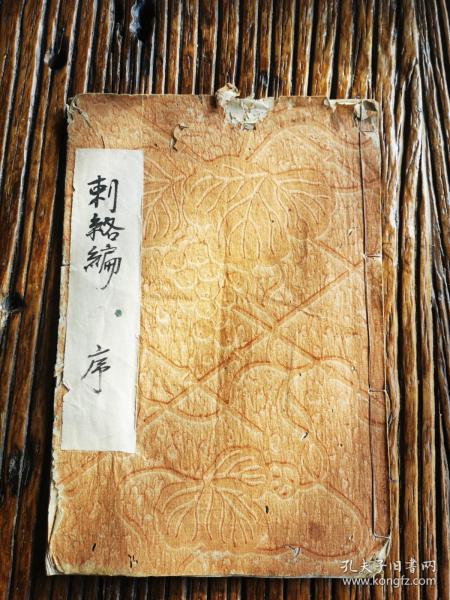 刺絡編 序
孔夫子旧书网
www.kongfz.com